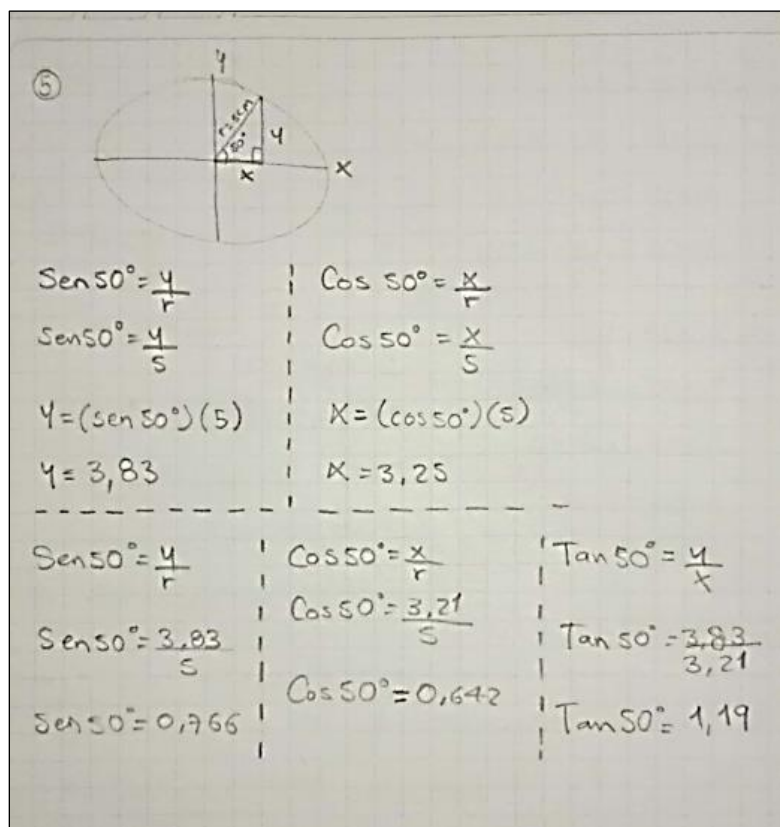 5
y
r=5cm
50°
y
x
x
Sen50°=y/r
Sen50°=y/5
y=(sen50°)(5)
y=3,83
Cos 50°=x/r
Cos50°=x/5
x=(cos50°)(5)
x=3,25
Sen50°=y/r
Sen50°=3,83/5
Sen50°=0,766
Cos50°=x/r
Cos50°=3,21/5
Cos50°=0,642
Tan50°=y/x
Tan50°=3,83/3,21
Tan50°=1,19